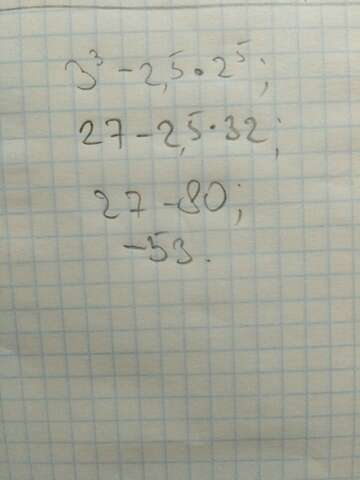 3³ - 2,5 • 2⁵;
27 - 2,5 • 32;
27 - 80;
-53.